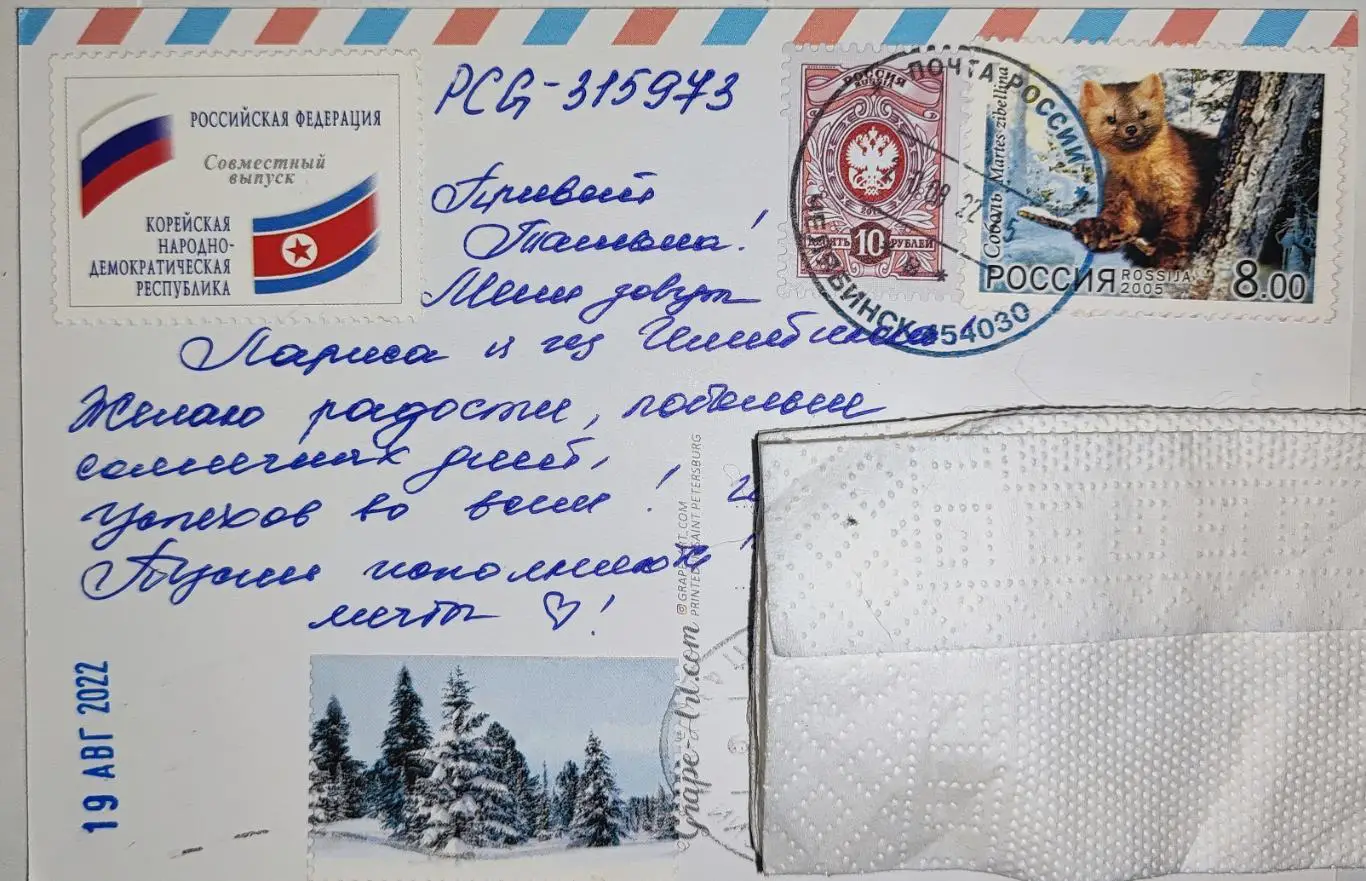 РОССИЙСКАЯ ФЕДЕРАЦИЯ
Совместный
выпуск
КОРЕЙСКАЯ
НАРОДНО-
ДЕМОКРАТИЧЕСКАЯ
РЕСПУБЛИКА
РСG-315973
РОССИЯ
ROSSIJA
ДЕСЯТЬ 10 РУБЛЕЙ
ПОЧТА РОССИИ
08 22
ЧЕЛЯБИНСК 454030
Соболь Martes zibellina
РОССИЯ ROSSIJA 2005 8.00
Привет
Татьяна!
Меня зовут
Лариса из Челябинска
Желаю радости, побольше
солнечных дней,
Успехов во всём! И
Пусть исполнятся
мечты ♡!
19 АВГ 2022
PRINTED SAINT PETERSBURG
Grape-Art.com